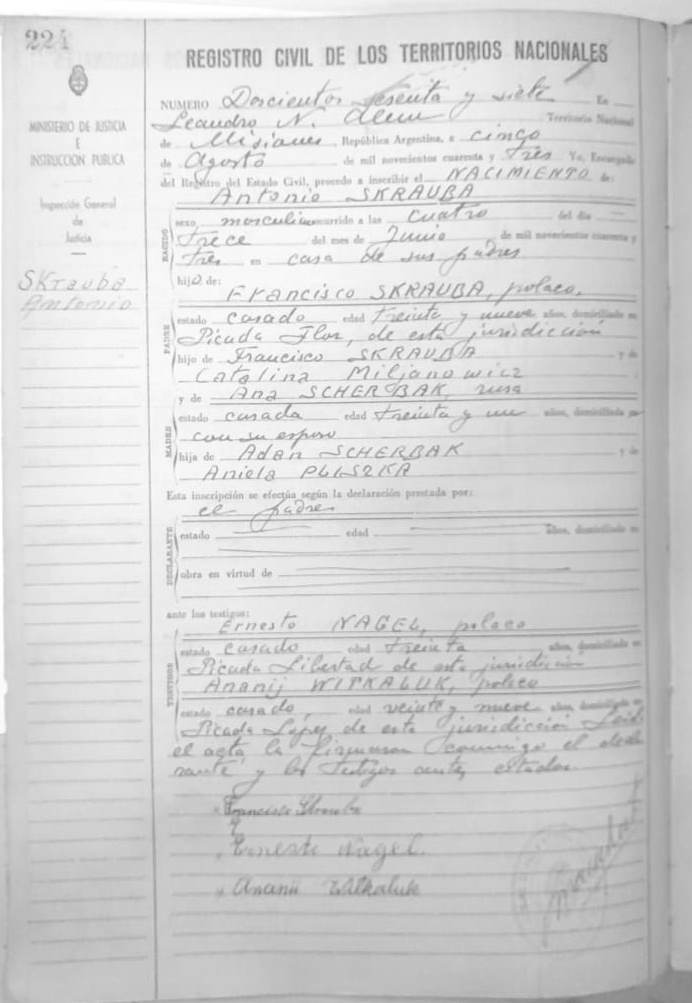 224
REGISTRO CIVIL DE LOS TERRITORIOS NACIONALES
MINISTERIO DE JUSTICIA
E
INSTRUCCIÓN PUBLICA
Inspección General
de
Justicia
SKrauba
Antonio
NUMERO Doscientos sesenta y siete En
Leandro N. Alem Territorio Nacional
de Misiones, República Argentina, a cinco
de Agosto de mil novecientos cuarenta y Tres Yo, Encargado
del Registro del Estado Civil, procedo a inscribir el NACIMIENTO de:
Antonio SKRAUBA
NACIDO
sexo, masculino ocurrido a las cuatro del día
Trece del mes de Junio de mil novecientos cuarenta y
Tres en casa de sus padres
hijo de:
Francisco SKRAUBA, polaco,
PADRE
estado casado edad treinta y nueve años, domiciliado en
Picada Flor, de esta jurisdicción
hijo de Francisco SKRAUBA y de
Catalina Miljanowicz
y de Ana SCHERBAK, rusa
MADRE
estado casada edad treinta y un años, domiciliada
con su esposo
hija de Adán SCHERBAK y de
Aniela PLISZKA
Esta inscripción se efectúa según la declaración prestada por:
el padre
DECLARANTE
estado edad años, domiciliado en
obra en virtud de
ante los testigos:
Ernesto NAGEL, polaco
TESTIGOS
estado casado edad treinta años, domiciliado en
Picada Libertad de esta jurisdicción
Ananij WITKALUK, polaco
estado casado, edad veinte y nueve años, domiciliado en
Picada López de esta jurisdicción Leída
el acta la firmaron conmigo el decla
rante y los testigos antes citados.
Francisco Skrauba
Ernesto Nagel
Ananii Witkaluk